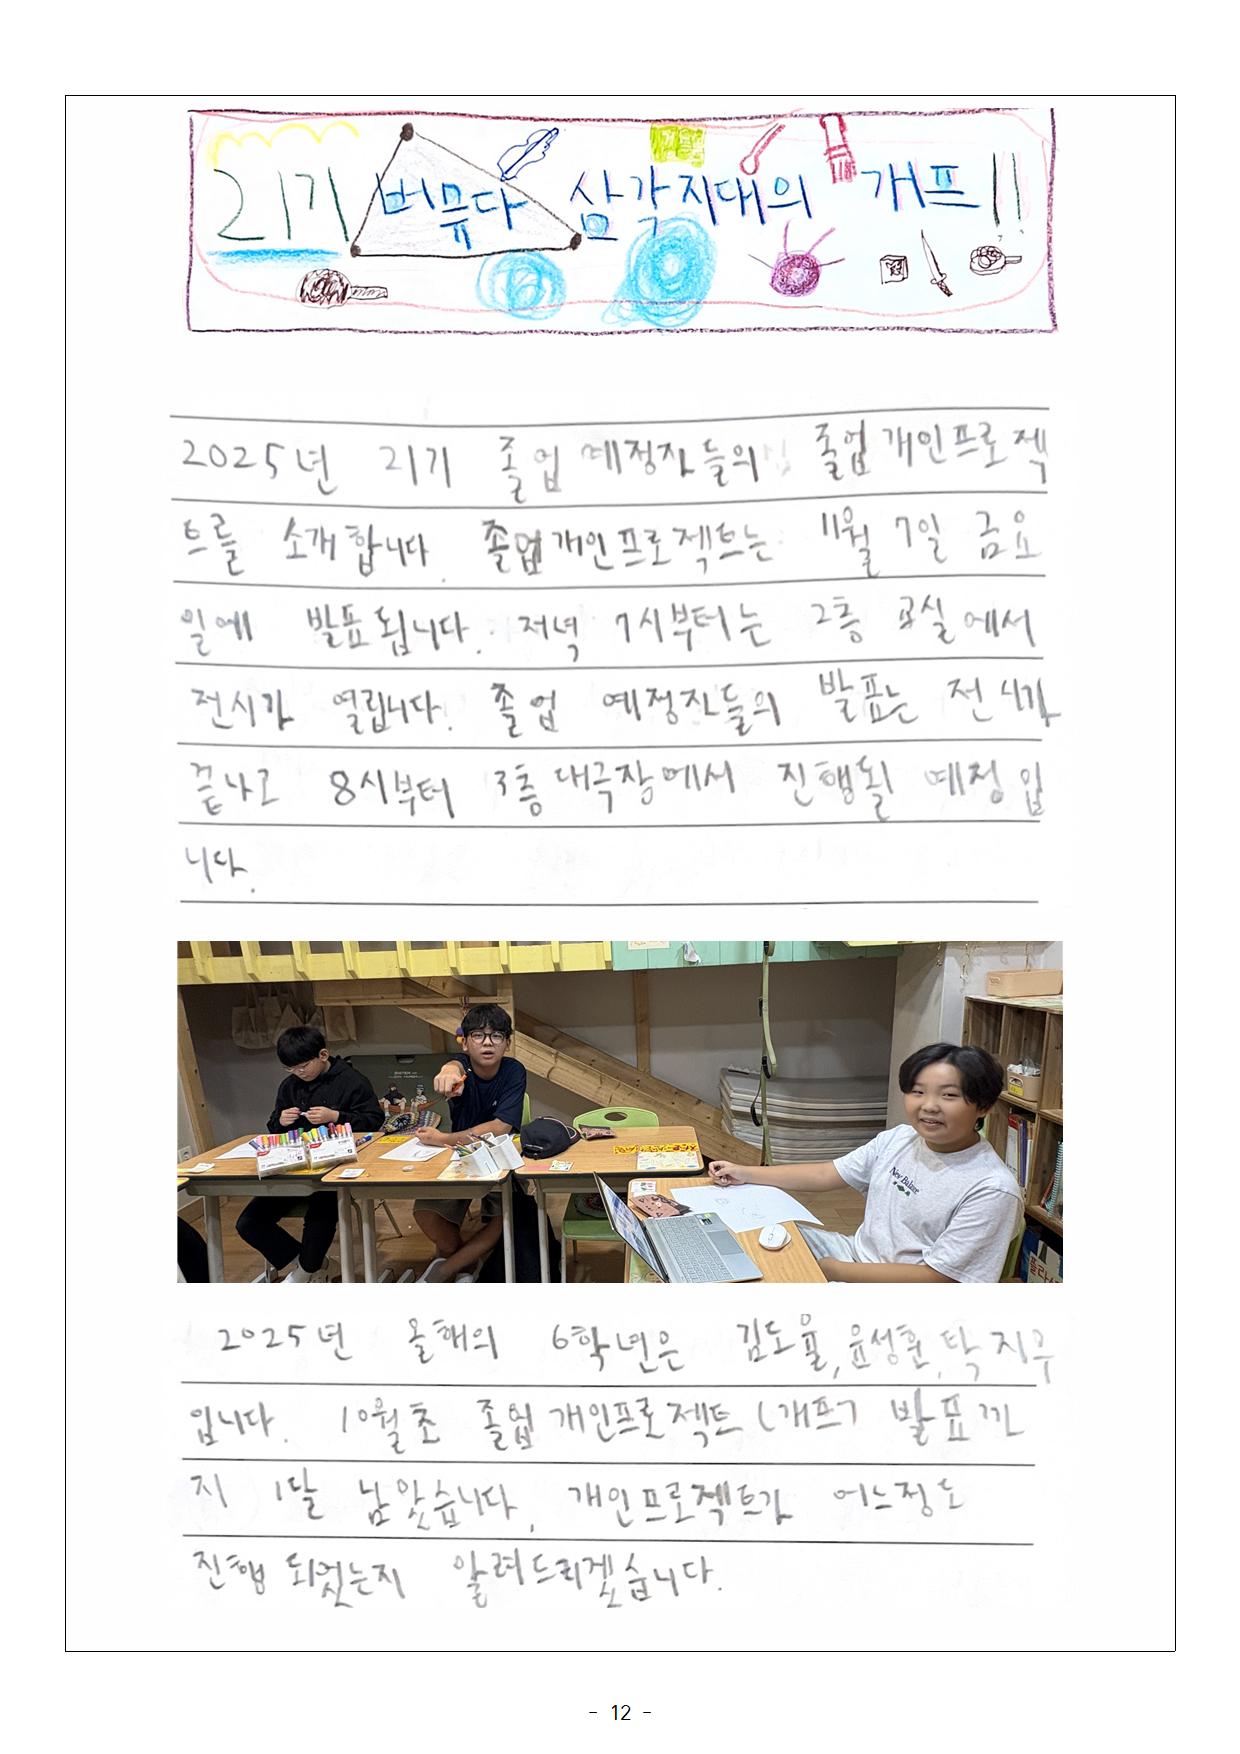 21기 버뮤다 삼각지대의 개프!!
2025년 21기 졸업 예정자들의 졸업개인프로젝
트를 소개합니다. 졸업개인프로젝트는 11월 7일 금요
일에 발표됩니다. 저녁 7시부터는 2층 교실에서
전시가 열립니다. 졸업 예정자들의 발표는 전시가
끝나고 8시부터 3층 대극장에서 진행될 예정입
니다.
New Balance
2025년 올해의 6학년은 김도율, 윤성훈, 탁지루
입니다. 10월초 졸업개인프로젝트(개프) 발표까
지 1달 남았습니다. 개인프로젝트가 어느정도
진행 되었는지 알려드리겠습니다.
- 12 -